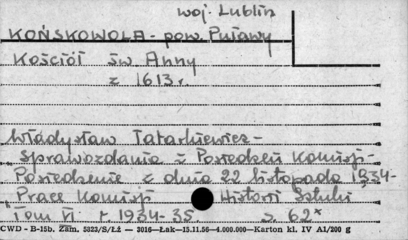 woj. Lublin
KOŃSKOWOLA - pow. Puławy
Kościół św. Anny
z 1613 r.
Władysław Tatarkiewicz -
„Sprawozdania z Posiedzeń Komisji -
Posiedzenie z dnia 22 listopada 1934 -
„Prace Komisji Historii Sztuki
Tom VI r 1934-35. s. 62*
CWD - B-15b. Zam. 5823/S/Łż — 3016—Łak—15.11.56—4.000.000—Karton kl. IV A1/200 g